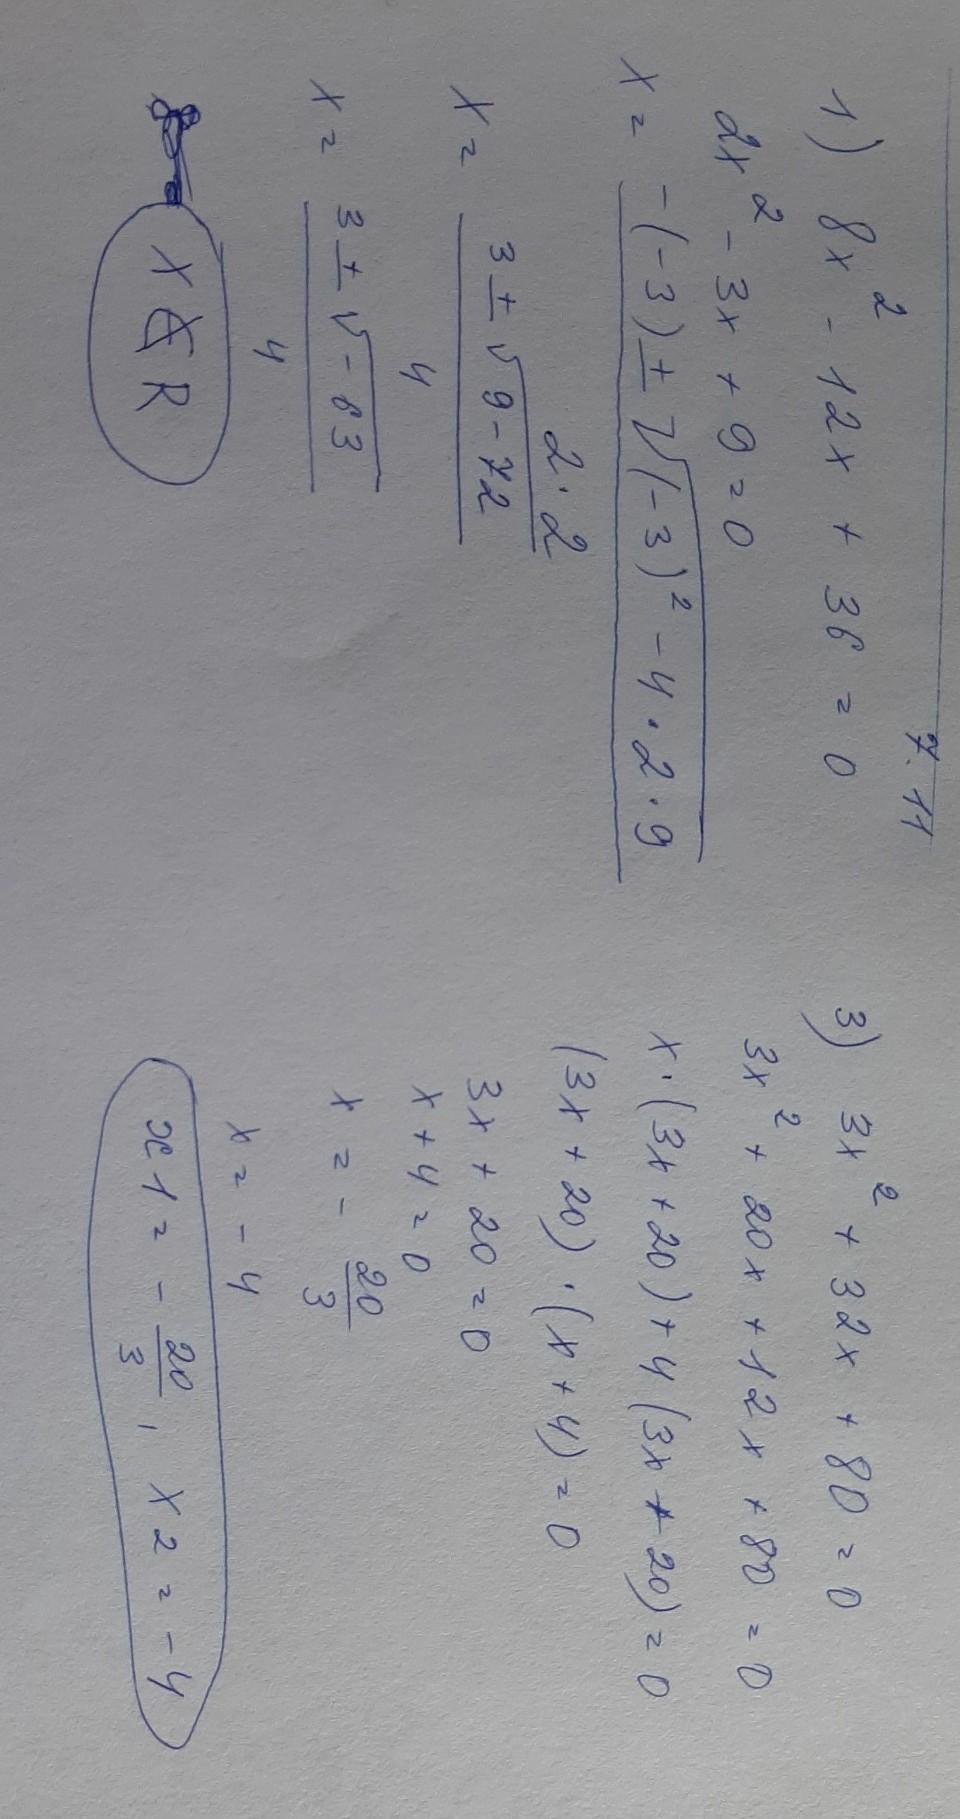 7.11
1) 8x² - 12x + 36 = 0
2x² - 3x + 9 = 0
x = (-(-3) ± √((-3)² - 4·2·9)) / (2·2)
x = (3 ± √(9-72)) / 4
x = (3 ± √(-63)) / 4
x ∉ R
3) 3x² + 32x + 80 = 0
3x² + 20x + 12x + 80 = 0
x·(3x + 20) + 4(3x + 20) = 0
(3x + 20)·(x + 4) = 0
3x + 20 = 0
x + 4 = 0
x = - 20/3
x = - 4
x1 = - 20/3, x2 = -4